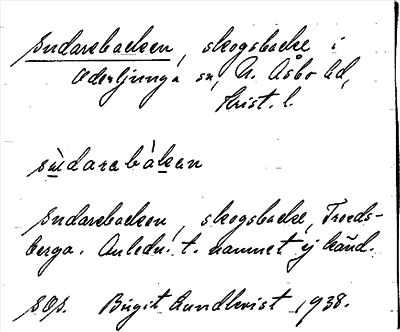 Sudarebacken, skogsbacke i
Oderljunga sn, N. Åsbo hd,
Krist. l.
sùdarebàkan
Sudarebacken, skogsbacke, Troeds-
berga. Anledn. t. namnet ej känd.
sOs. Birgit Lundkvist 1938.